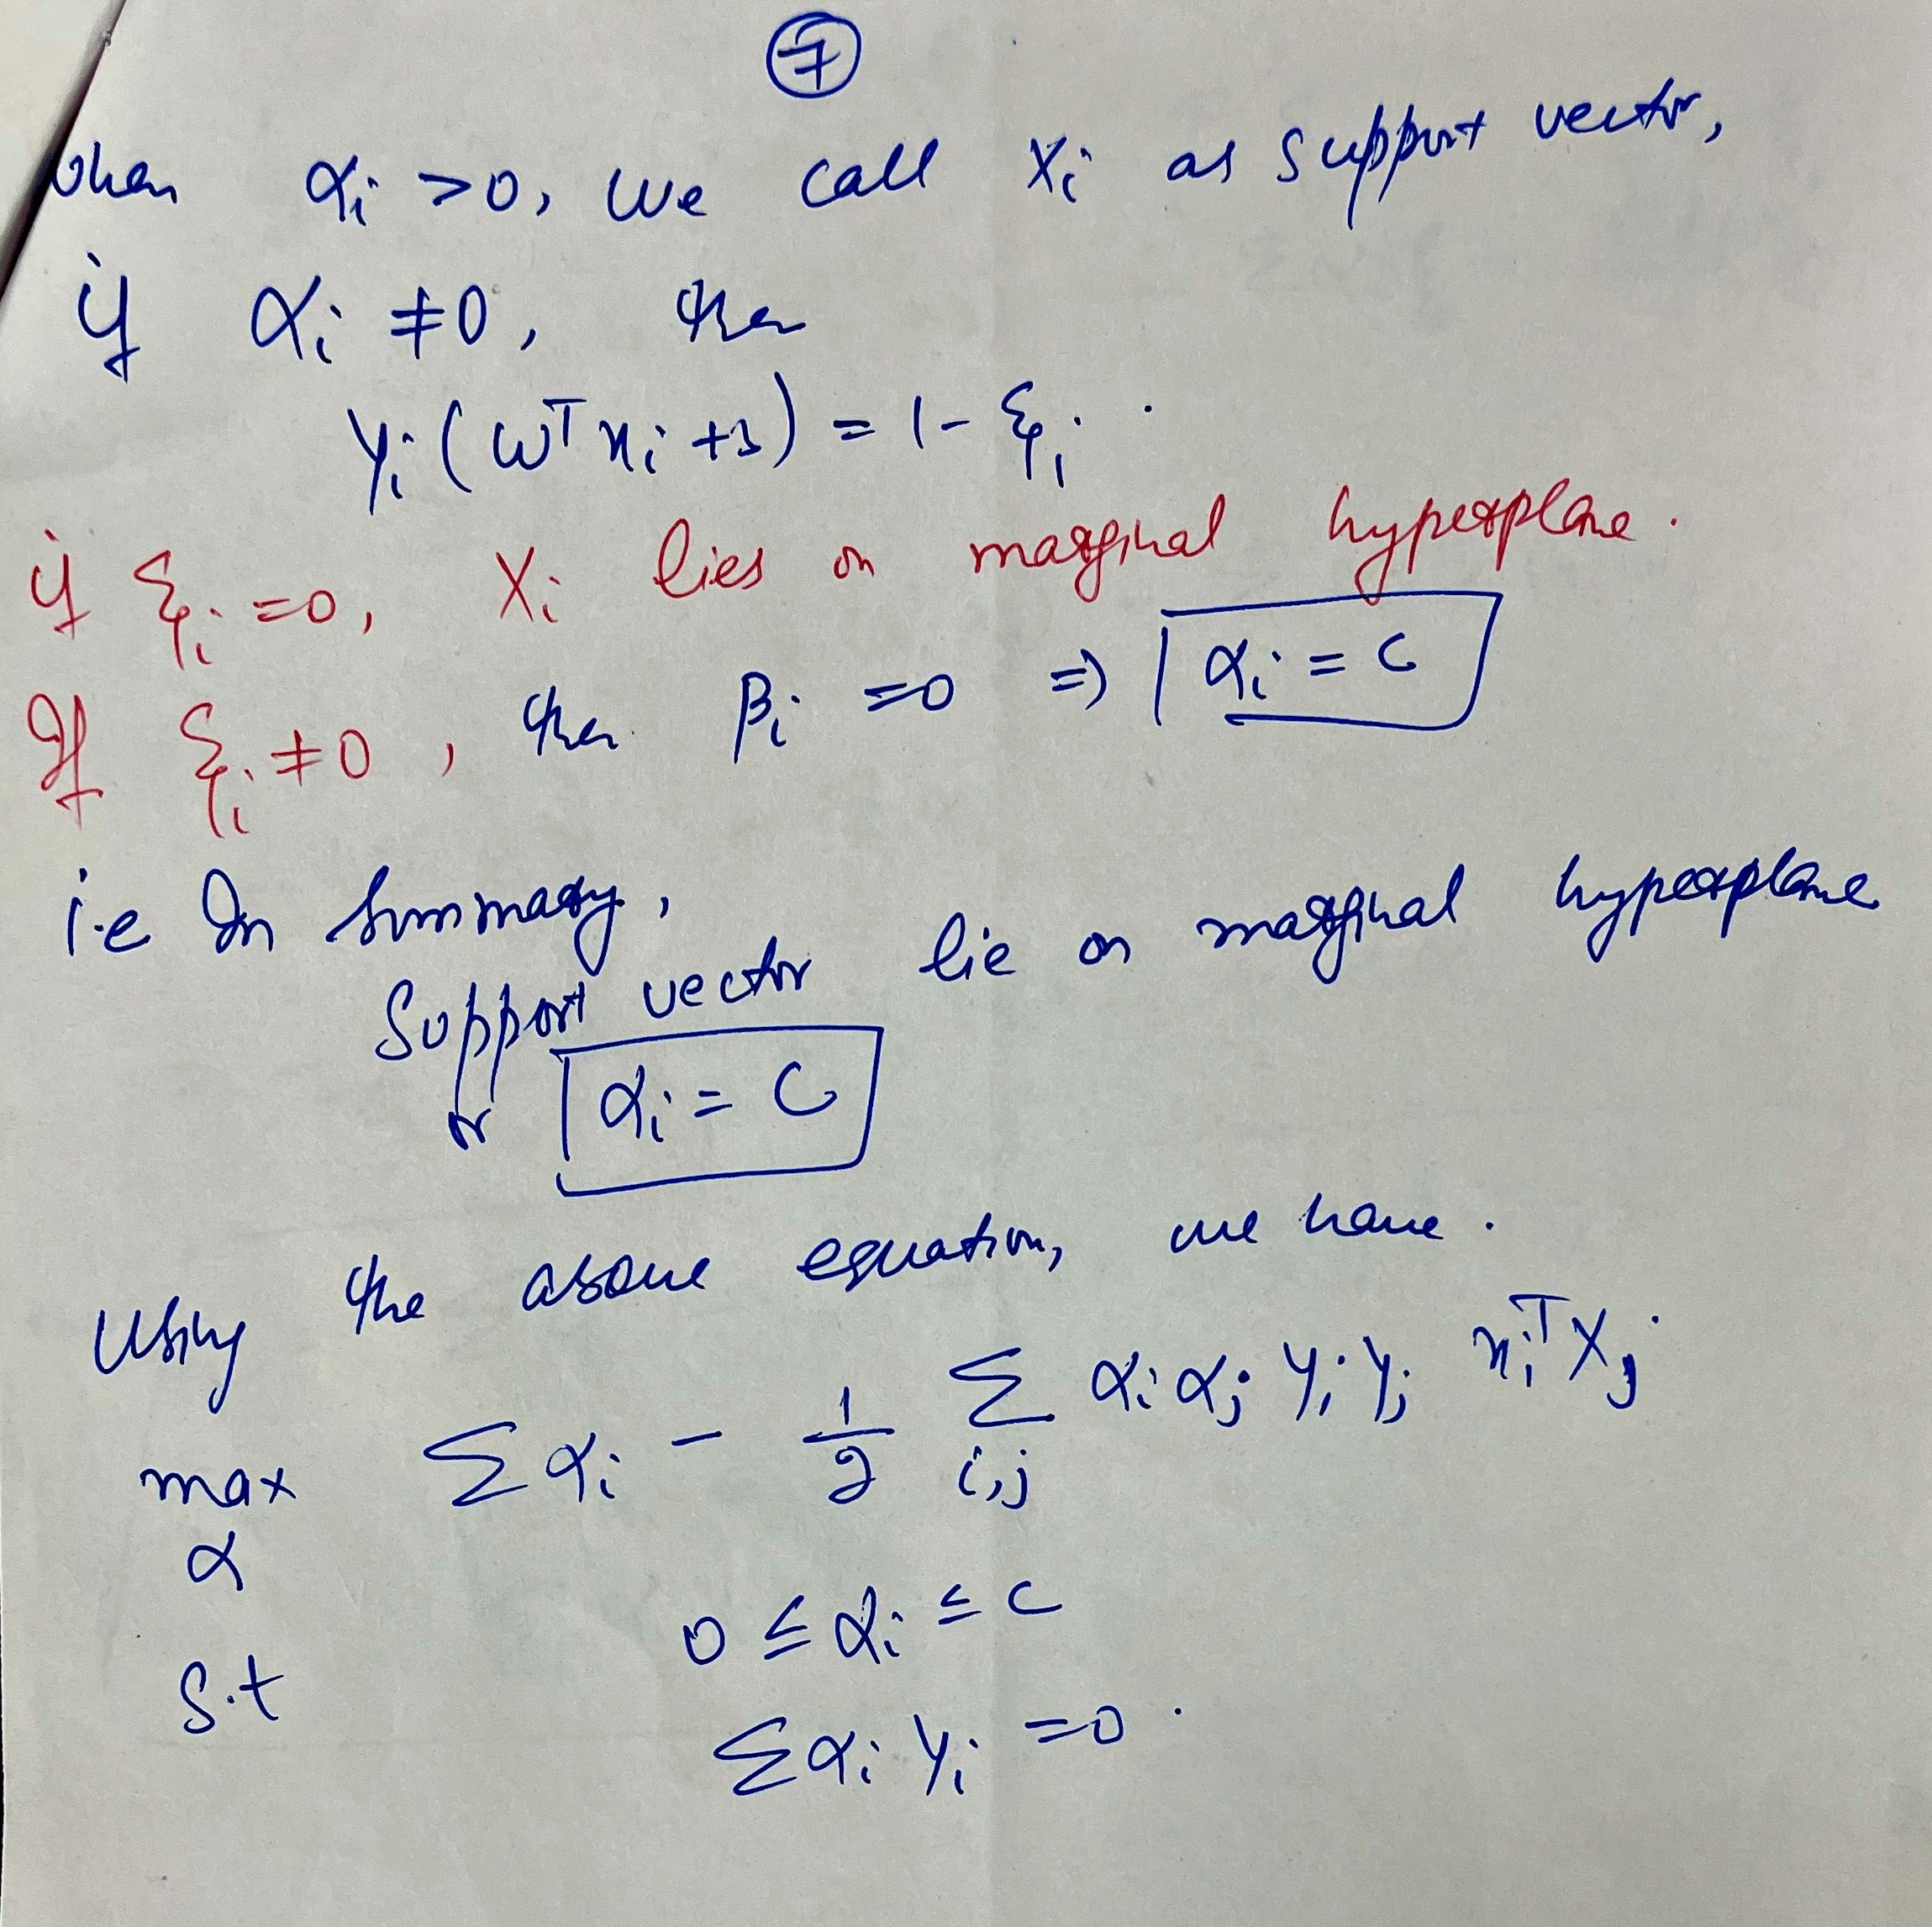 7
when αi >0, we call Xi as support vector,
if αi ≠0, then
yi (wᵀxi +b) = 1- ξi .
if ξi =0, Xi lies on marginal hyperplane.
If ξi ≠0, then βi =0 => αi = C
i.e In Summary,
Support vector lie on marginal hyperplane
or αi = C
Using the above equation, we have.
max Σαi - 1/2 Σ αi αj yi yj xiᵀXj
α i,j
s.t 0 ≤ αi ≤ C
Σαi yi =0.